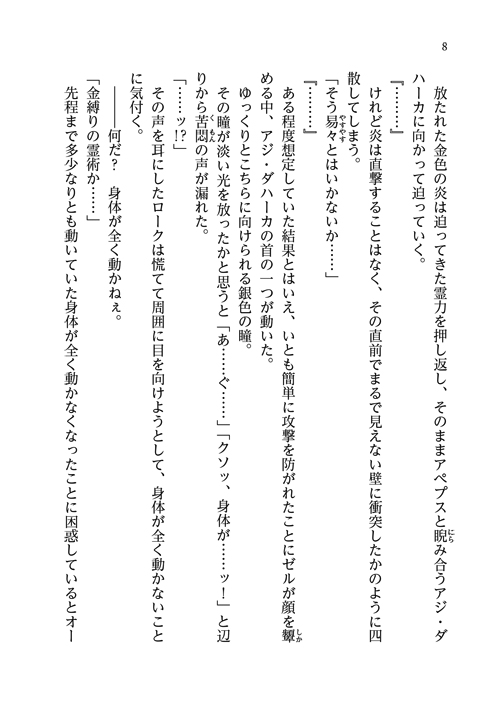 8
放たれた金色の炎は迫ってきた霊力を押し返し、そのままアペプスと睨み合うアジ・ダ
ハーカに向かって迫っていく。
『………』
けれど炎は直撃することはなく、その直前でまるで見えない壁に衝突したかのように四
散してしまう。
「そう易々とはいかないか……」
『………』
ある程度想定していた結果とはいえ、いとも簡単に攻撃を防がれたことにゼルが顔を顰
める中、アジ・ダハーカの首の一つが動いた。
ゆっくりとこちらに向けられる銀色の瞳。
その瞳が淡い光を放ったかと思うと「あ……ぐ……」「クソッ、身体が……ッ！」と辺
りから苦悶の声が漏れた。
「……ッ!?」
その声を耳にしたロークは慌てて周囲に目を向けようとして、身体が全く動かないこと
に気付く。
――何だ？　身体が全く動かねぇ。
「金縛りの霊術か……」
先程まで多少なりとも動いていた身体が全く動かなくなったことに困惑しているとオー